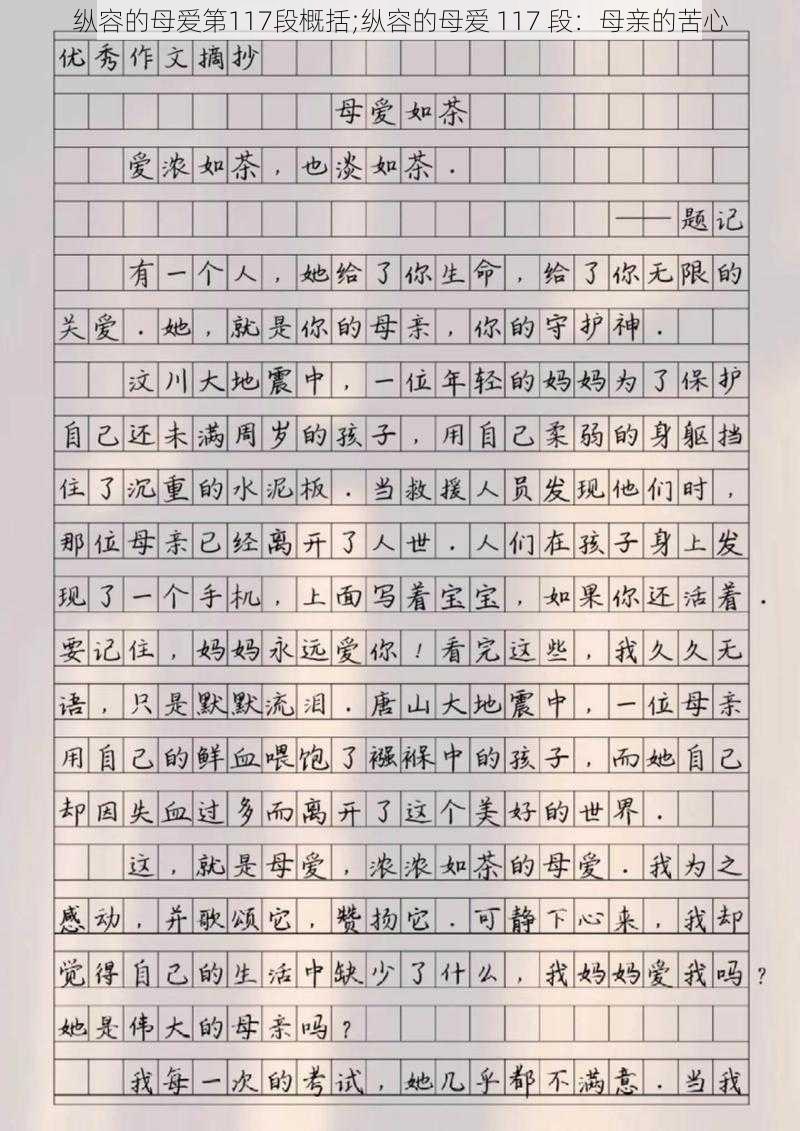 纵容的母爱第117段概括;纵容的母爱 117 段：母亲的苦心
优秀作文摘抄
母爱如茶
爱浓如茶，也淡如茶．
——题记
有一个人，她给了你生命，给了你无限的
关爱．她，就是你的母亲，你的守护神．
汶川大地震中，一位年轻的妈妈为了保护
自己还未满周岁的孩子，用自己柔弱的身躯挡
住了沉重的水泥板．当救援人员发现他们时，
那位母亲已经离开了人世．人们在孩子身上发
现了一个手机，上面写着宝宝，如果你还活着．
要记住，妈妈永远爱你！看完这些，我久久无
语，只是默默流泪．唐山大地震中，一位母亲
用自己的鲜血喂饱了襁褓中的孩子，而她自己
却因失血过多而离开了这个美好的世界．
这，就是母爱，浓浓如茶的母爱．我为之
感动，并歌颂它，赞扬它．可静下心来，我却
觉得自己的生活中缺少了什么，我妈妈爱我吗？
她是伟大的母亲吗？
我每一次的考试，她几乎都不满意．当我